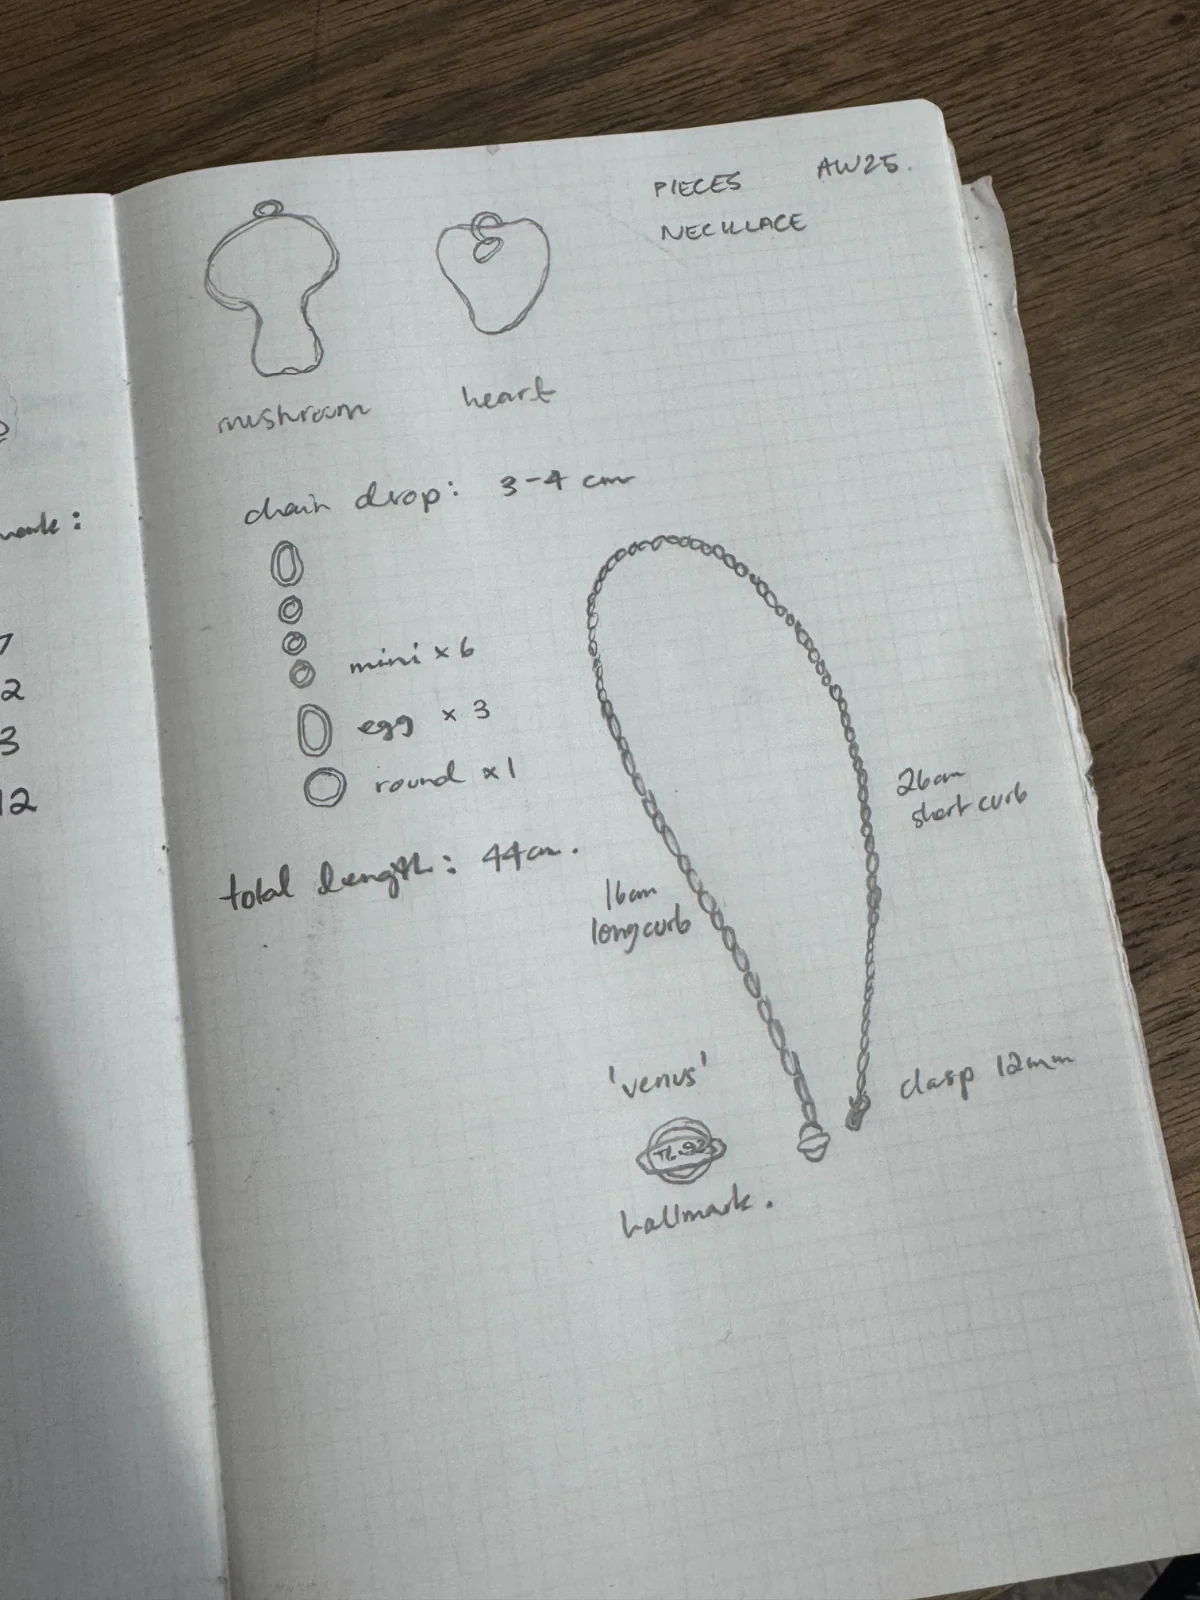 PIECES AW25.
NECKLACE
mushroom
heart
chain drop: 3-4 cm
mini × 6
egg × 3
round × 1
total length: 44cm.
26cm
short curb
16cm
long curb
clasp 12mm
'venus'
hallmark.
7
2
3
12